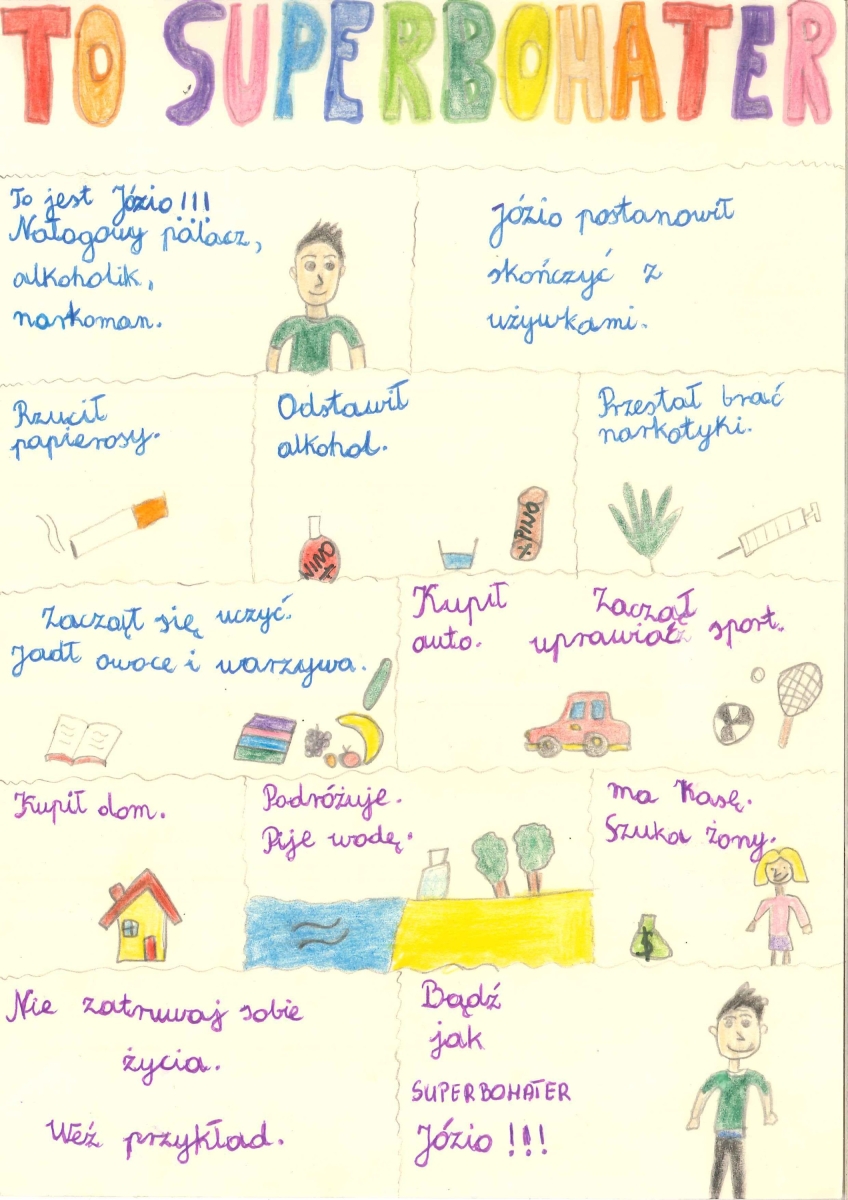 TO SUPERBOHATER
To jest Józio!!!
Nałogowy palacz,
alkoholik,
narkoman.
Józio postanowił
skończyć z
używkami.
Rzucił
papierosy.
Odstawił
alkohol.
WINO
PIWO
Przestał brać
narkotyki.
Zaczął się uczyć.
Jadł owoce i warzywa.
Kupił
auto.
Zaczął
uprawiać sport.
Kupił dom.
Podróżuje.
Pije wodę.
ma kasę.
Szuka żony.
$
Nie zatruwaj sobie
życia.
Weź przykład.
Bądź
jak
SUPERBOHATER
Józio!!!